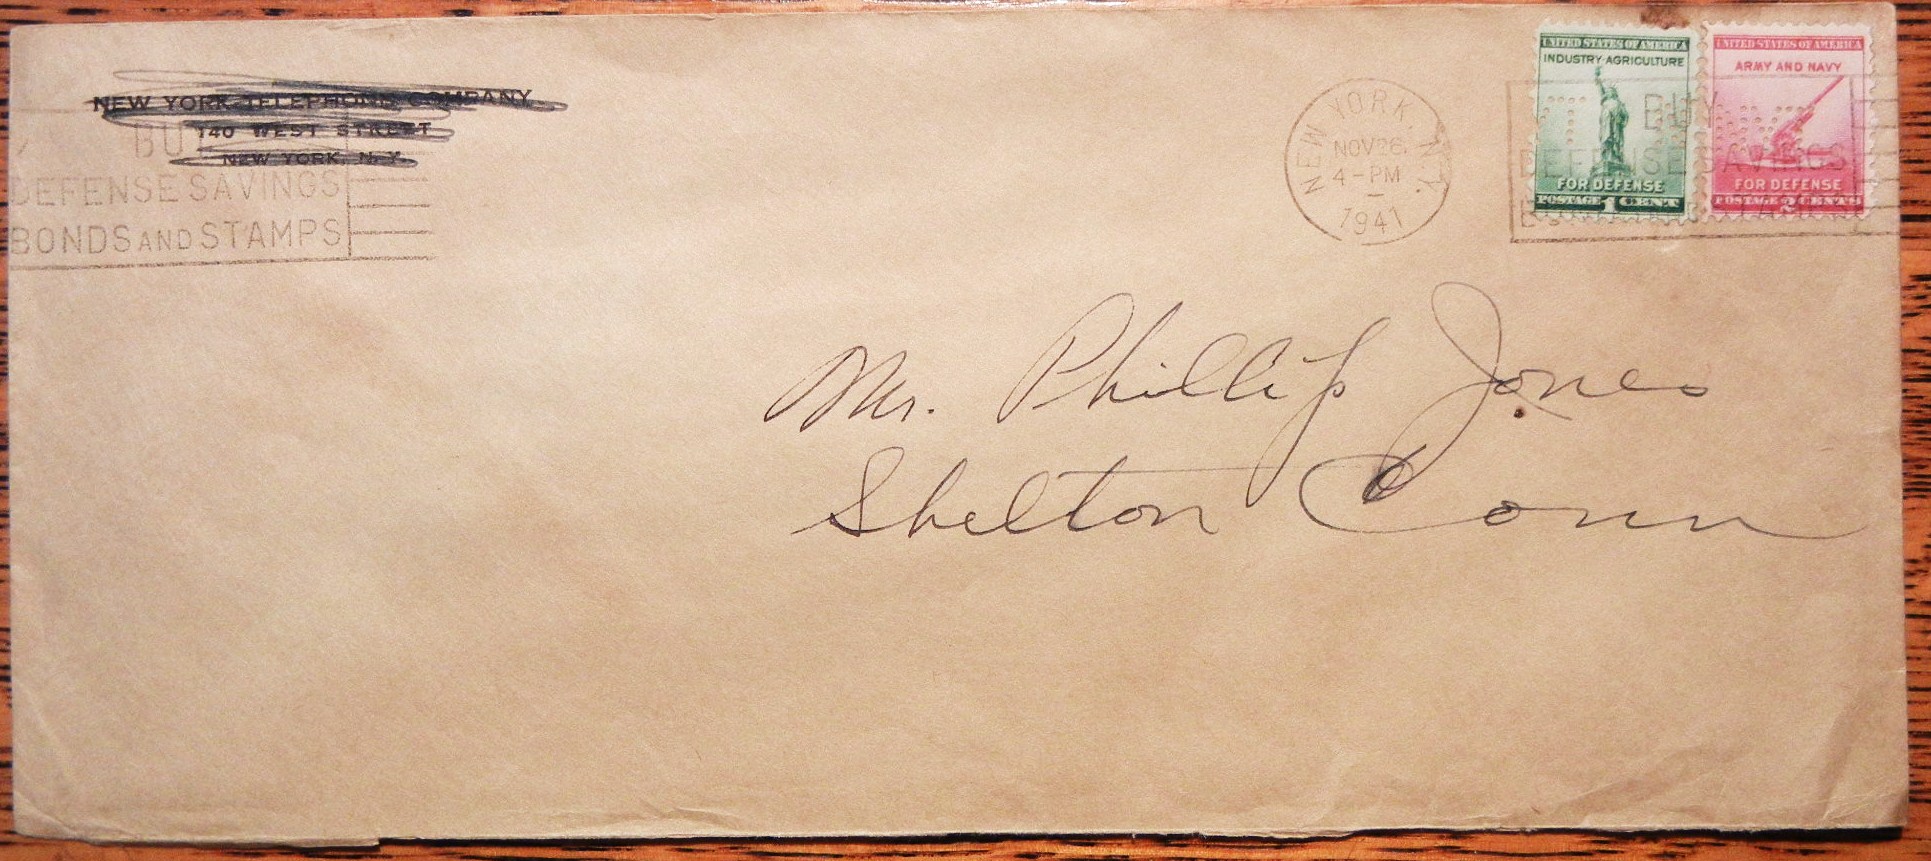 NEW YORK TELEPHONE COMPANY
140 WEST STREET
NEW YORK, N. Y.
BUY
DEFENSE SAVINGS
BONDS AND STAMPS
NEW YORK, N.Y.
NOV 26
4-PM
1941
BUY
DEFENSE SAVINGS
BONDS AND STAMPS
UNITED STATES OF AMERICA
INDUSTRY·AGRICULTURE
FOR DEFENSE
POSTAGE 1 CENT
UNITED STATES OF AMERICA
ARMY AND NAVY
FOR DEFENSE
POSTAGE 2 CENTS
Mr. Phillip Jones
Shelton Conn